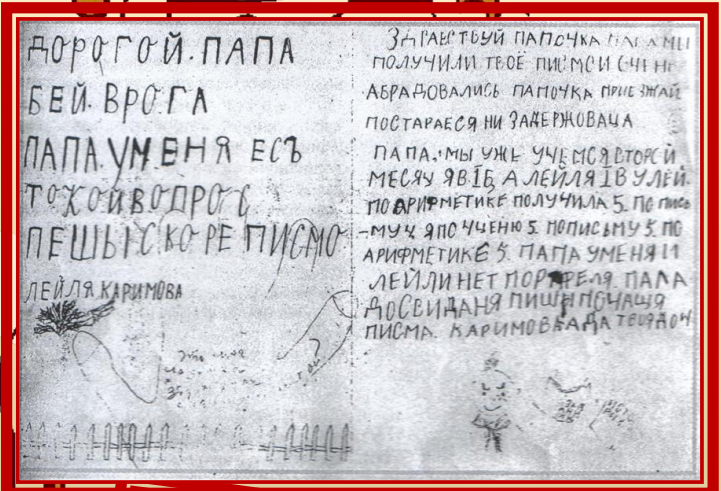 ДОРОГОЙ. ПАПА
БЕЙ. ВРОГА
ПАПА. УМЕНЯ ЕСЪ
ТОКОЙ ВОПРОС
ПЕШЫ СКОРЕ ПИСМО
ЛЕЙЛЯ КАРИМОВА
Это моя
ЗДРАВСТВУЙ ПАПОЧКА ПАПА МЫ
ПОЛУЧИЛИ ТВОЕ ПИСМО И ОЧЕНЬ
АБРАДОВАЛИСЬ ПАПОЧКА ПРИЕЗЖАЙ
ПОСТАРАЕСЯ НИ ЗАДЕРЖОВАЦА
ПАПА. МЫ УЖЕ УЧЕМСЯ ВТОРОЙ
МЕСЯЦ Я В I Б А ЛЕЙЛЯ I В УЛЕЙ.
ПО АРИФМЕТИКЕ ПОЛУЧИЛА 5. ПО ПИСЬ
-МУ 4 Я ПО ЧЧЕНЮ 5. ПОПИСЬМУ 5. ПО
АРИФМЕТИКЕ 5. ПАПА УМЕНЯ И
ЛЕЙЛИ НЕТ ПОРТФЕЛЯ. ПАПА
ДОСВИДАНЯ ПИШИ ПОЧАЩЯ
ПИСМА. КАРИМОВА АДА ТВОЯ ДОЧ